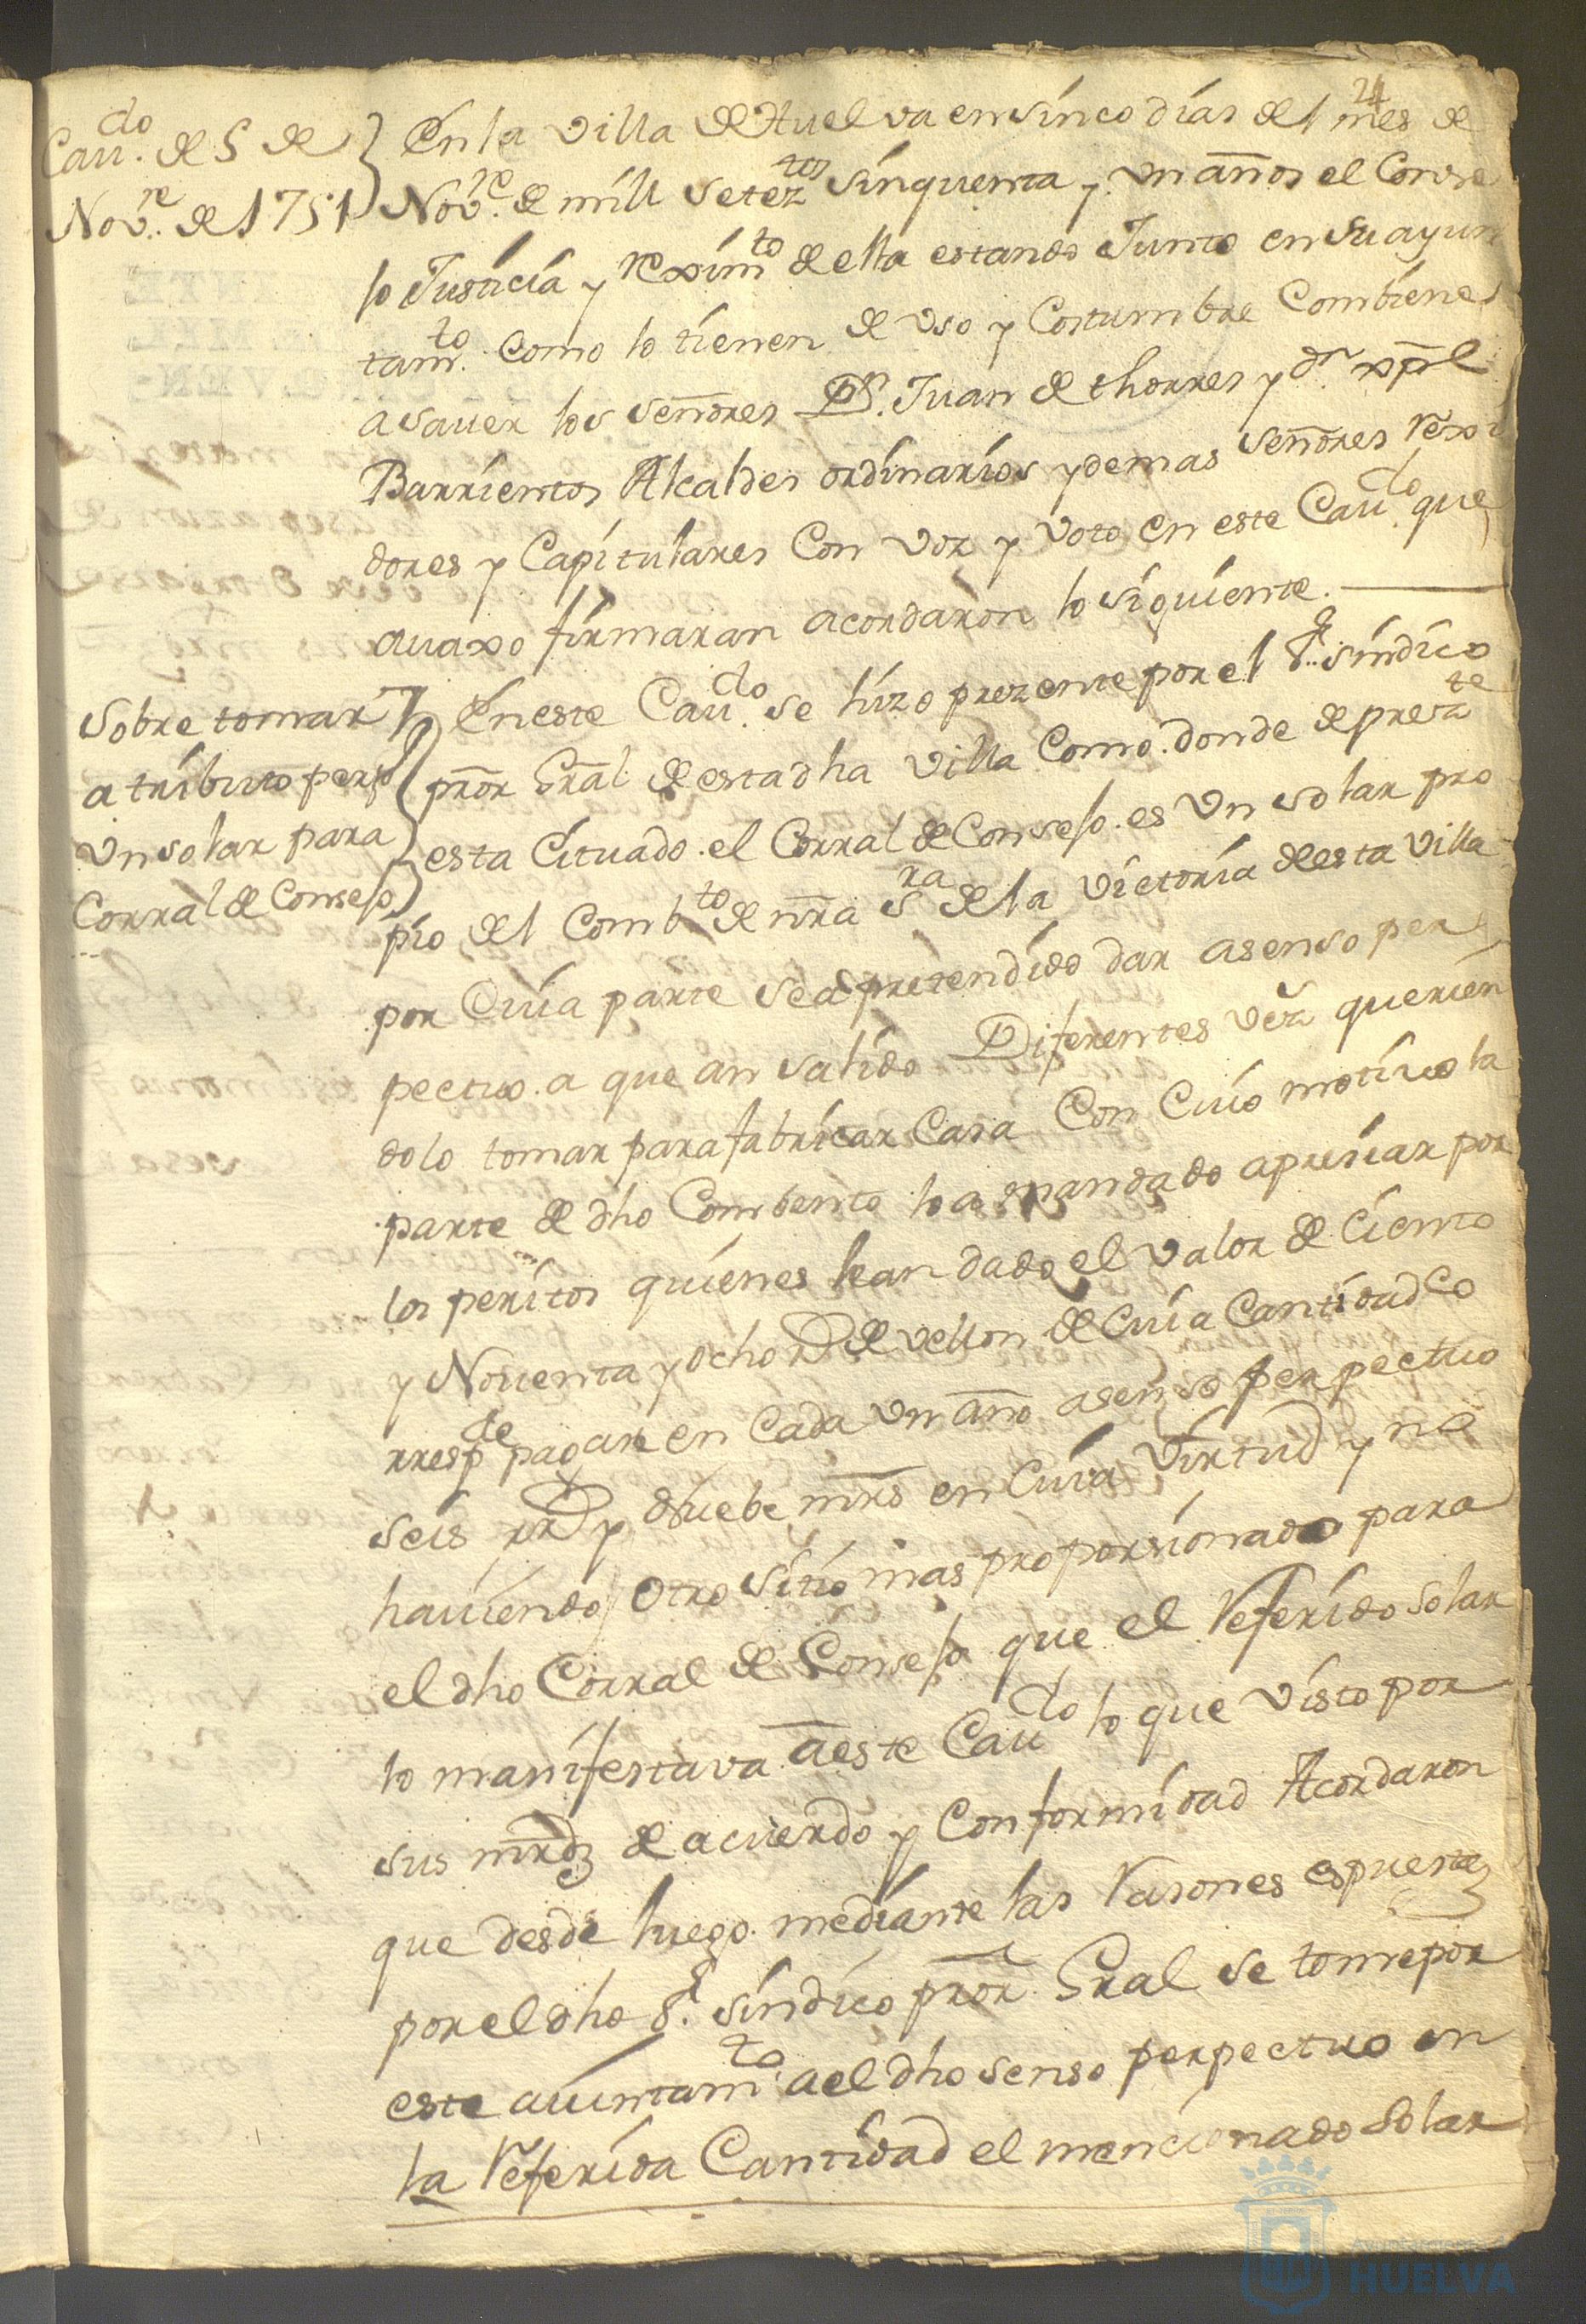 24
Cau.do de 5 de
Nov.re de 1751
En la Villa de Huelva en sinco dias del mes de
Nov.re de mill setez.tos sinquenta y un años el Conse
lo Justicia y reximto de ella estando Junto en su ayun
tam.to como lo tienen de uso y Costumbre Combiene
a sauer los señores Dn. Juan de thorres y dn xpl
Barrientos Alcaldes ordinarios y demas señores rexi
dores y Capitulares Con voz y voto en este Cau.do que
auaxo firmaran acordaron lo siguiente.
Sobre tomar
a tributo perpo
un solar para
Corral de Conselo
En este Cau.do se hizo prezente por el Sr. sindico
pror Gral de esta dha Villa Como donde de prezte
esta Cituado el Corral de Conselo es Un solar pro
pio del Combto de nra Sra de la Victoria de esta Villa
por Cuia parte se a pretendido dar a senso per
pectuo a que an salido Diferentes vez querien
dolo tomar para fabricar Casa Con Cuio motiuo la
parte de dho Combento lo a mandado apresiar por
los peritos quienes lean dado el valor de Ciento
y Nouenta y ocho rs de vellon de Cuia Cantidad Co
rrespde pagar en Cada un año a senso perpectuo
seis rrs y nuebe mrs en Cuia Virtud y no
hauiendo otro sitio mas proporsionado para
el dho Corral de Conselo que el Referido Solar
lo manifestava a este Caudo lo que visto por
sus mrdz de acuerdo y Conformidad Acordaron
que desde luego mediante las Rasones espuestas
por el dho Sr. sindico pror Gral se tome por
este auintamto a el dho senso perpectuo en
la Referida Cantidad el mencionado Solar
Ayuntamiento de
HUELVA